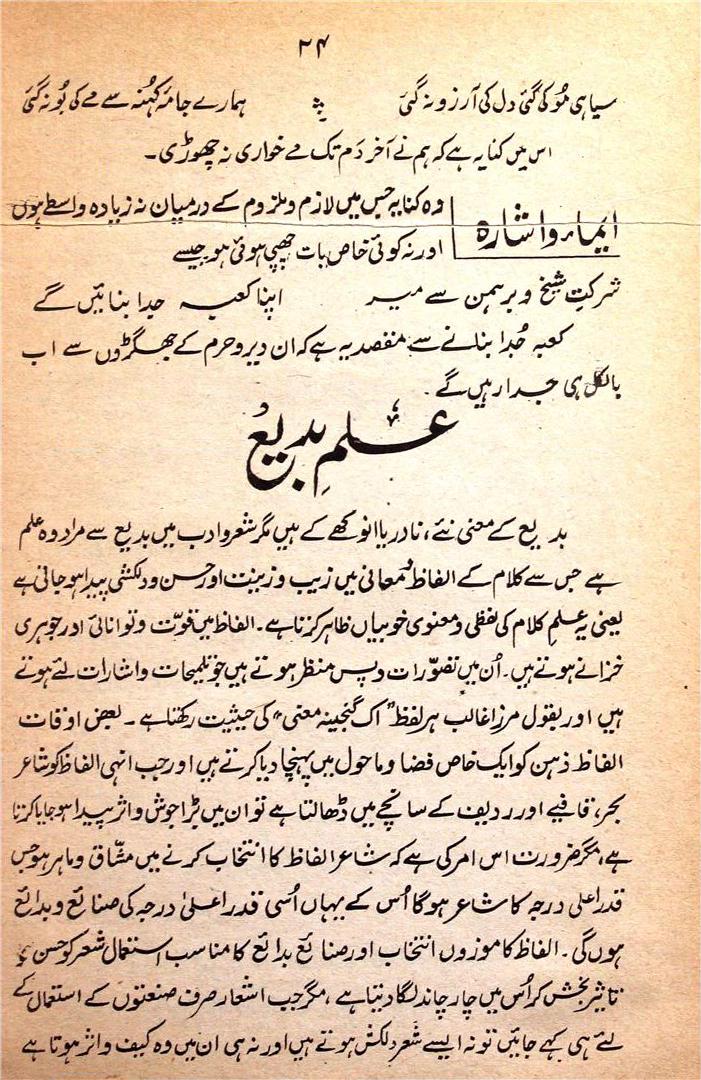 ۲۴
سیاہی مُو کی گئی دل کی آرزو نہ گئی ؛ ہمارے جامۂ کہُنہ سے مے کی بُو نہ گئی
اس میں کنایہ ہے کہ ہم نے آخر دَم تک مے خواری نہ چھوڑی۔
ایماء و اشارہ
وہ کنایہ جس میں لازم و ملزوم کے درمیان نہ زیادہ واسطے ہوں
اور نہ کوئی خاص بات چھپی ہوئی ہو جیسے
شرکتِ شیخ و برہمن سے میر اپنا کعبہ جدا بنائیں گے
کعبہ جُدا بنانے سے مقصد یہ ہے کہ ان دیر و حرم کے جھگڑوں سے اب
بالکل ہی جدا رہیں گے۔
علمِ بدیعُ
بدیع کے معنی نئے، نادر یا انوکھے کے ہیں مگر شعر و ادب میں بدیع سے مراد وہ علم
ہے جس سے کلام کے الفاظ و معانی میں زیب و زینت اور حسن و دلکشی پیدا ہو جاتی ہے
یعنی یہ علم کلام کی لفظی و معنوی خوبیاں ظاہر کرتا ہے۔ الفاظ میں قوّت و توانائی اور جوہری
خزانے ہوتے ہیں۔ اُن میں تصوّرات و پس منظر ہوتے ہیں جو تلمیحات و اشارات لئے ہوتے
ہیں اور بقول مرزا غالب ہر لفظ "اک گنجینۂ معنی" کی حیثیت رکھتا ہے۔ بعض اوقات
الفاظ ذہن کو ایک خاص فضا و ماحول میں پہنچا دیا کرتے ہیں اور جب انہی الفاظ کو شاعر
بحر، قافیے اور ردیف کے سانچے میں ڈھالتا ہے تو ان میں بڑا جوش و اثر پیدا ہو جایا کرتا
ہے، مگر ضرورت اس امر کی ہے کہ شاعر الفاظ کا انتخاب کرنے میں مشّاق و ماہر ہو جس
قدر اعلی درجہ کا شاعر ہوگا اُس کے یہاں اُسی قدر اعلیٰ درجہ کی صنائع و بدائع
ہوں گی۔ الفاظ کا موزوں انتخاب اور صنائع بدائع کا مناسب استعمال شعر کو حسن و
تاثیر بخش کر اُس میں چار چاند لگا دیتا ہے، مگر جب اشعار صرف صنعتوں کے استعمال کے
لئے ہی کہے جائیں تو نہ ایسے شعر دلکش ہوتے ہیں اور نہ ہی ان میں وہ کیف و اثر ہوتا ہے